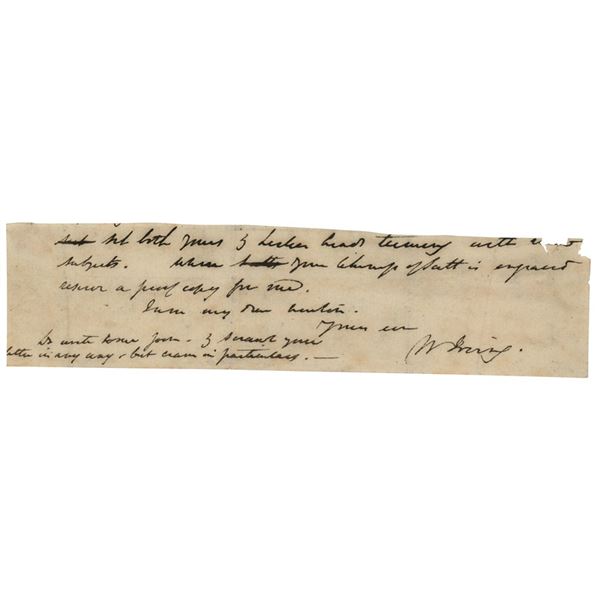 set both yours & Leslies heads teeming with
subjects. When your likeness of Scott is engraved
reserve a proof copy for me.
I am my dear Newton
Yours ever
W Irving.
Do write to me soon - & scrawl your
letter in any way - but cram in particulars. —